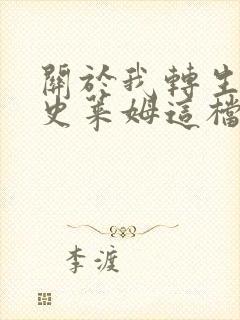 關於我轉生
史萊姆這檔
李渡